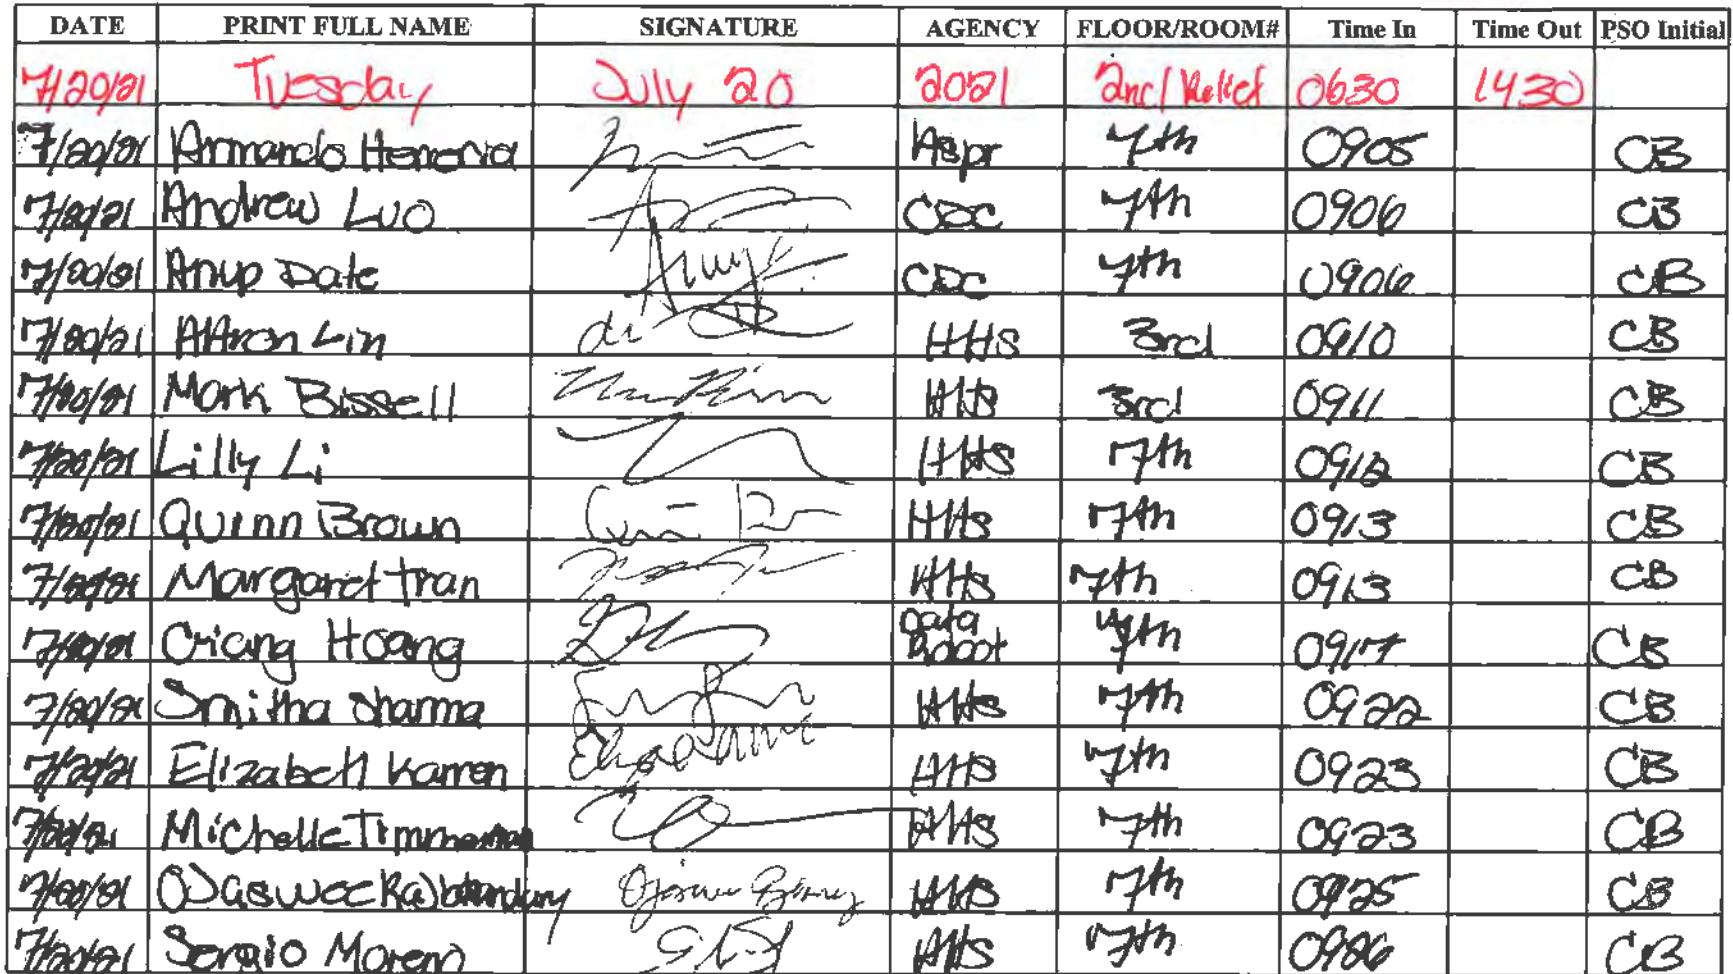 DATE PRINT FULL NAME SIGNATURE AGENCY FLOOR/ROOM# Time In Time Out PSO Initial
7/20/21 Tuesday July 20 2021 2nd Relief 0630 1430
7/20/21 Armando Heneria Aspr 7th 0905 CB
7/20/21 Andrew Luo CDC 7th 0906 CB
7/20/21 Anup Date CDC 7th 0906 CB
7/20/21 AAron Lin HHS 3rd 0910 CB
7/20/21 Mark Bissell HHS 3rd 0911 CB
7/20/21 Lilly Li HHS 7th 0912 CB
7/20/21 Quinn Brown HHS 7th 0913 CB
7/20/21 Margaret tran HHS 7th 0913 CB
7/20/21 Hoang Data Robot 7th 0917 CB
7/20/21 Smitha Sharma HHS 7th 0922 CB
7/20/21 Elizabeth Karren HHS 7th 0923 CB
7/20/21 Michelle Timmerman HHS 7th 0923 CB
7/20/21 HHS 7th 0925 CB
7/20/21 Sergio Moreno HHS 7th 0926 CB